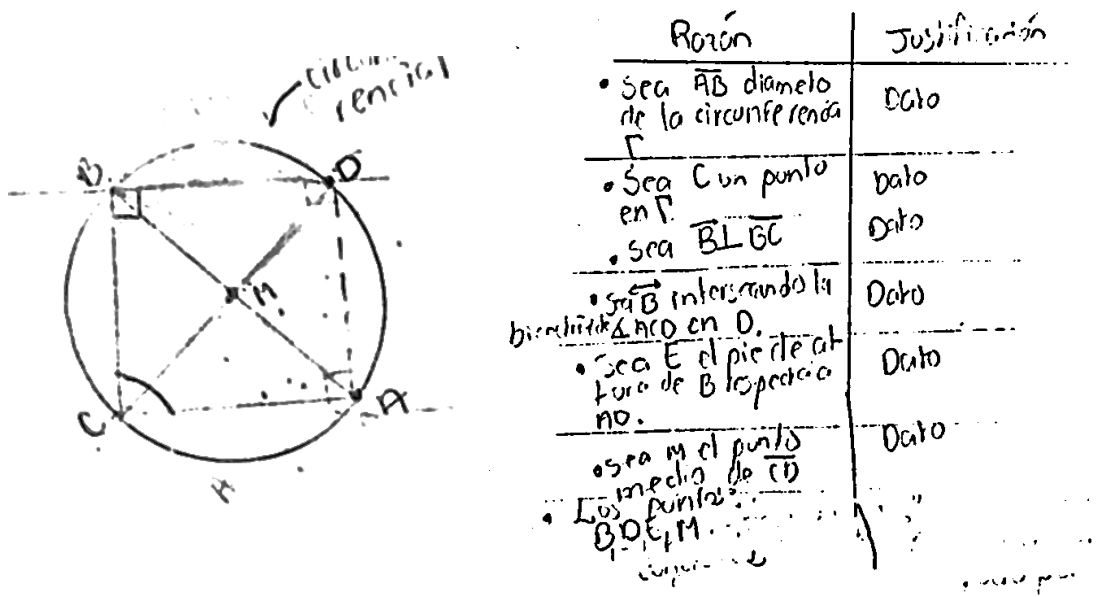 B
D
M
C
A
Razón
Justificación
• Sea AB diametro
de la circunferencia
Γ
Dato
• Sea C un punto
en Γ.
Dato
• Sea B⊥BC
Dato
• B intersecando la
∡ACD en D.
Dato
• Sea E el pie de al
tura de B respecto a
Dato
• sea M el punto
medio de CD
Dato
• Los puntos
B, D, E, M